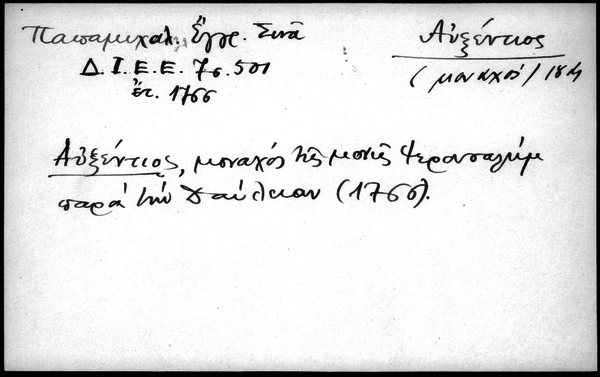 Παπαμιχαλ, Ἔγγρ. Σινᾶ
Δ. Ι. Ε. Ε. 7ς. 501
ἔτ. 1766
Αὐξέντιος
(μοναχός) 18
Αὐξέντιος, μοναχός τῆς μονῆς Ἱερουσαλήμ
παρά τήν Δαύλειαν (1766).